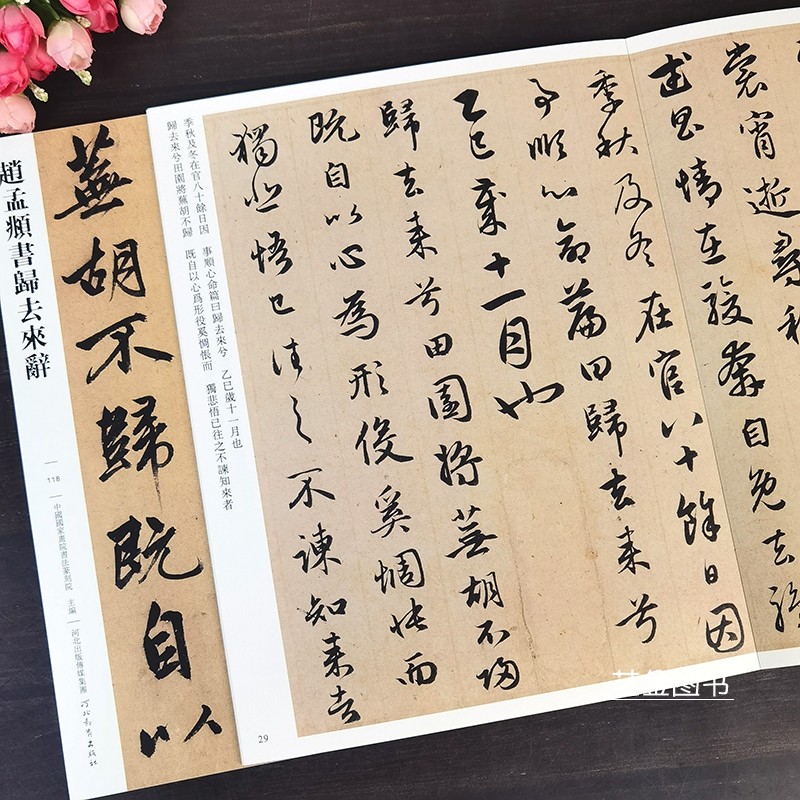 趙孟頫書歸去來辭
118
中國國家畫院書法篆刻院 主編
河北出版傳媒集團 河北教育出版社
蕪胡不歸既自以
裳宵逝尋程
武昌情在駿奔自免去職
季秋及冬在官八十餘日因
事順心命篇曰歸去來兮
乙巳歲十一月也
歸去來兮田園將蕪胡不歸
既自以心為形役奚惆悵而
獨悲悟已往之不諫知來者
季秋及冬在官八十餘日因 事順心命篇曰歸去來兮 乙巳歲十一月也
歸去來兮田園將蕪胡不歸 既自以心爲形役奚惆悵而 獨悲悟已往之不諫知來者
29
图书